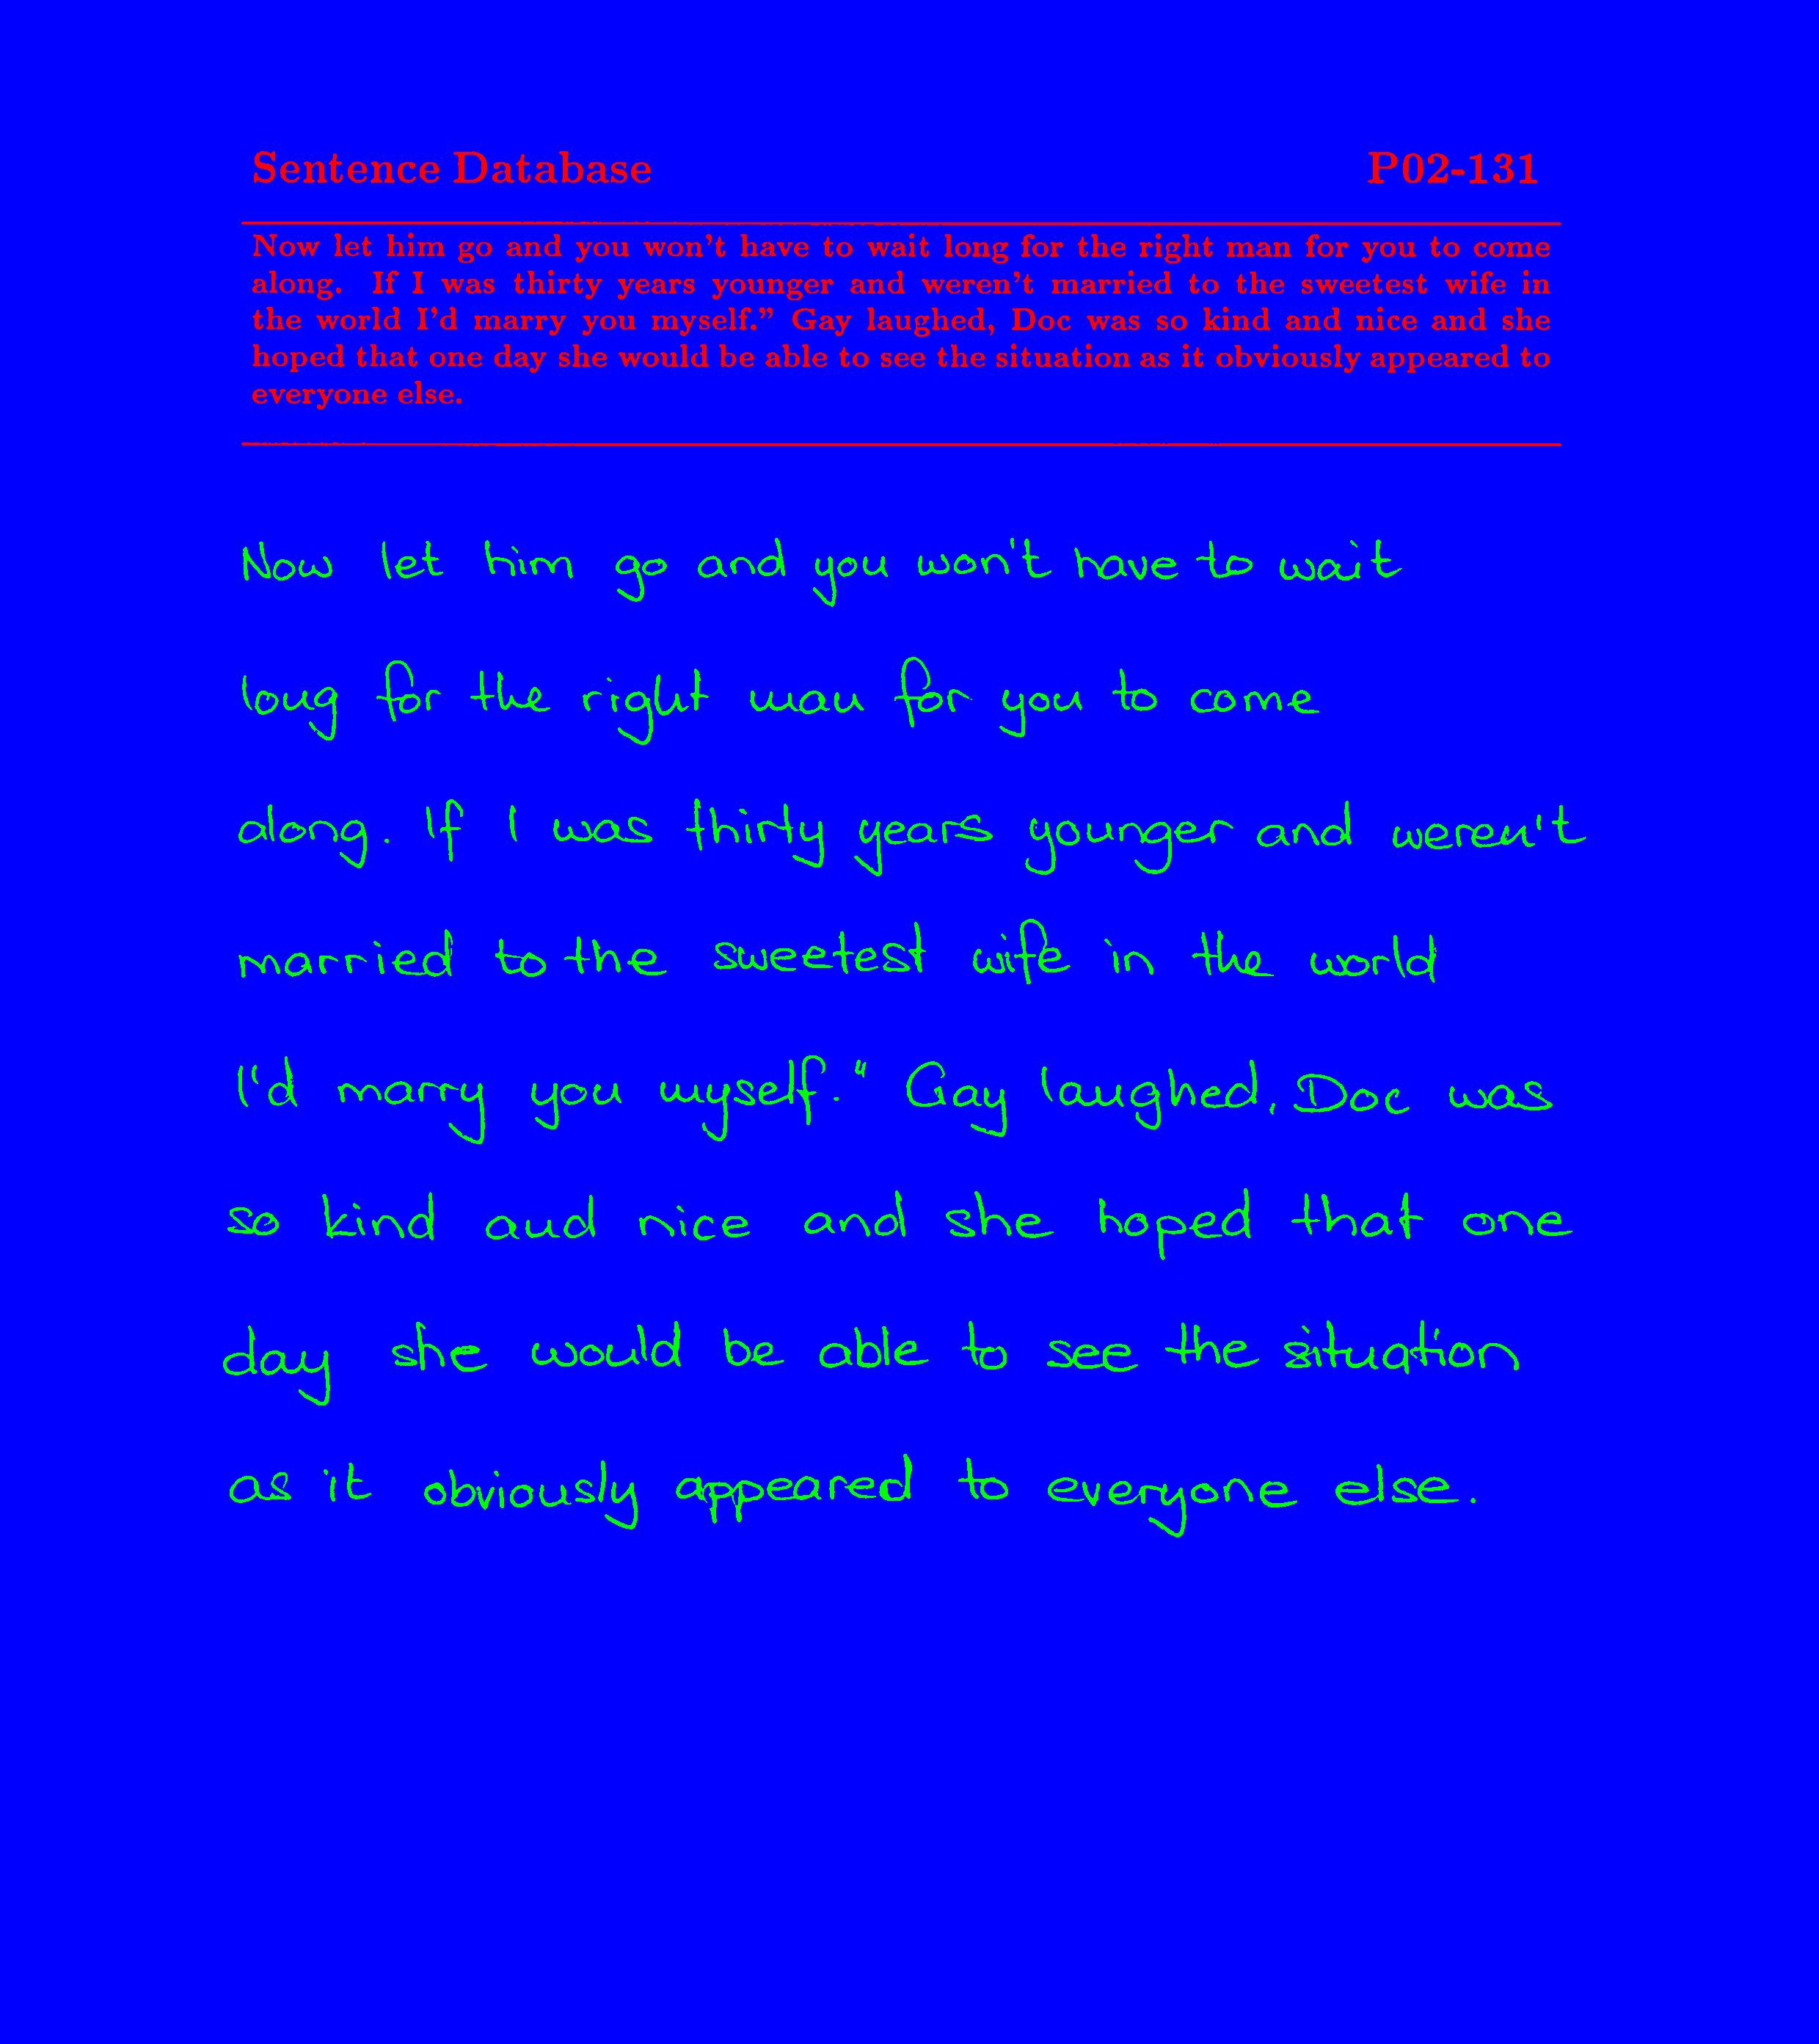 Sentence Database P02-131
Now let him go and you won't have to wait long for the right man for you to come
along. If I was thirty years younger and weren't married to the sweetest wife in
the world I'd marry you myself.” Gay laughed, Doc was so kind and nice and she
hoped that one day she would be able to see the situation as it obviously appeared to
everyone else.
Now let him go and you won't have to wait
long for the right man for you to come
along. If I was thirty years younger and weren't
married to the sweetest wife in the world
I'd marry you myself." Gay laughed, Doc was
so kind and nice and she hoped that one
day she would be able to see the situation
as it obviously appeared to everyone else.